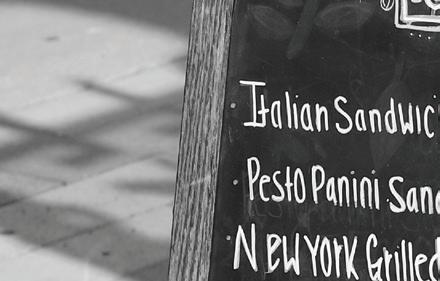 Italian Sandwic
Pesto Panini San
New York Grilled